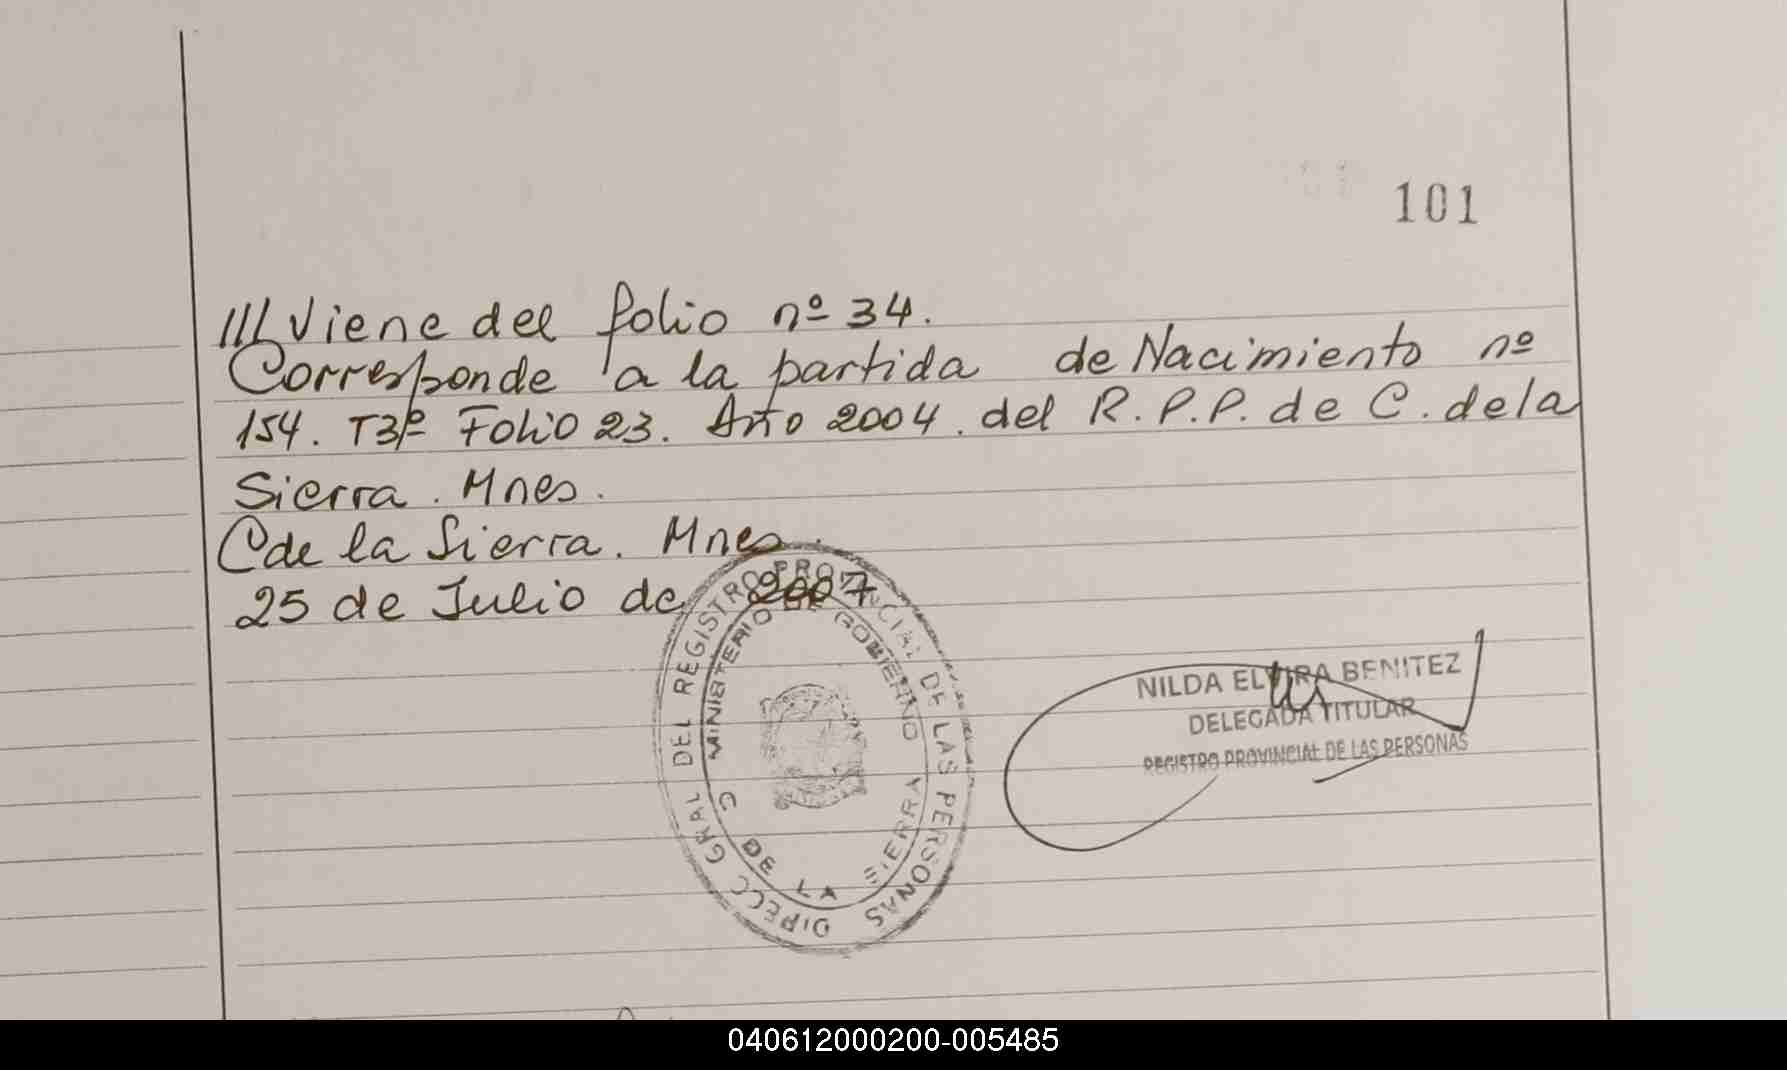 101
///Viene del folio nº 34.
Corresponde a la partida de Nacimiento nº
154. T3º Folio 23. Año 2004. del R.P.P. de C. de la
Sierra. Mnes.
C de la Sierra. Mnes.
25 de Julio de 2007
DIRECC GRAL DEL REGISTRO PROVINCIAL DE LAS PERSONAS
MINISTERIO DE GOBIERNO
C DE LA SIERRA
NILDA ELVIRA BENITEZ
DELEGADA TITULAR
REGISTRO PROVINCIAL DE LAS PERSONAS
040612000200-005485